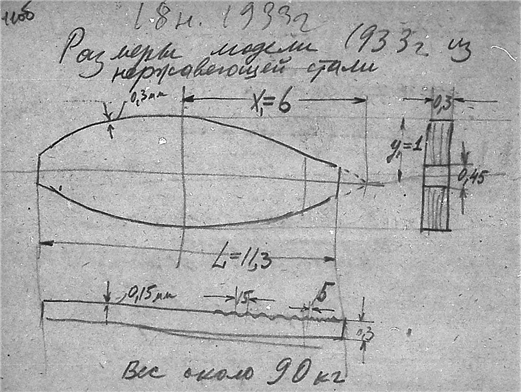 1933г
Размеры модели 1933г из
нержавеющей стали
0,3мм
X₁=6
0,3
y₁=1
0,45
L=11,3
0,15мм
15
5
0,3
Вес около 90 кг